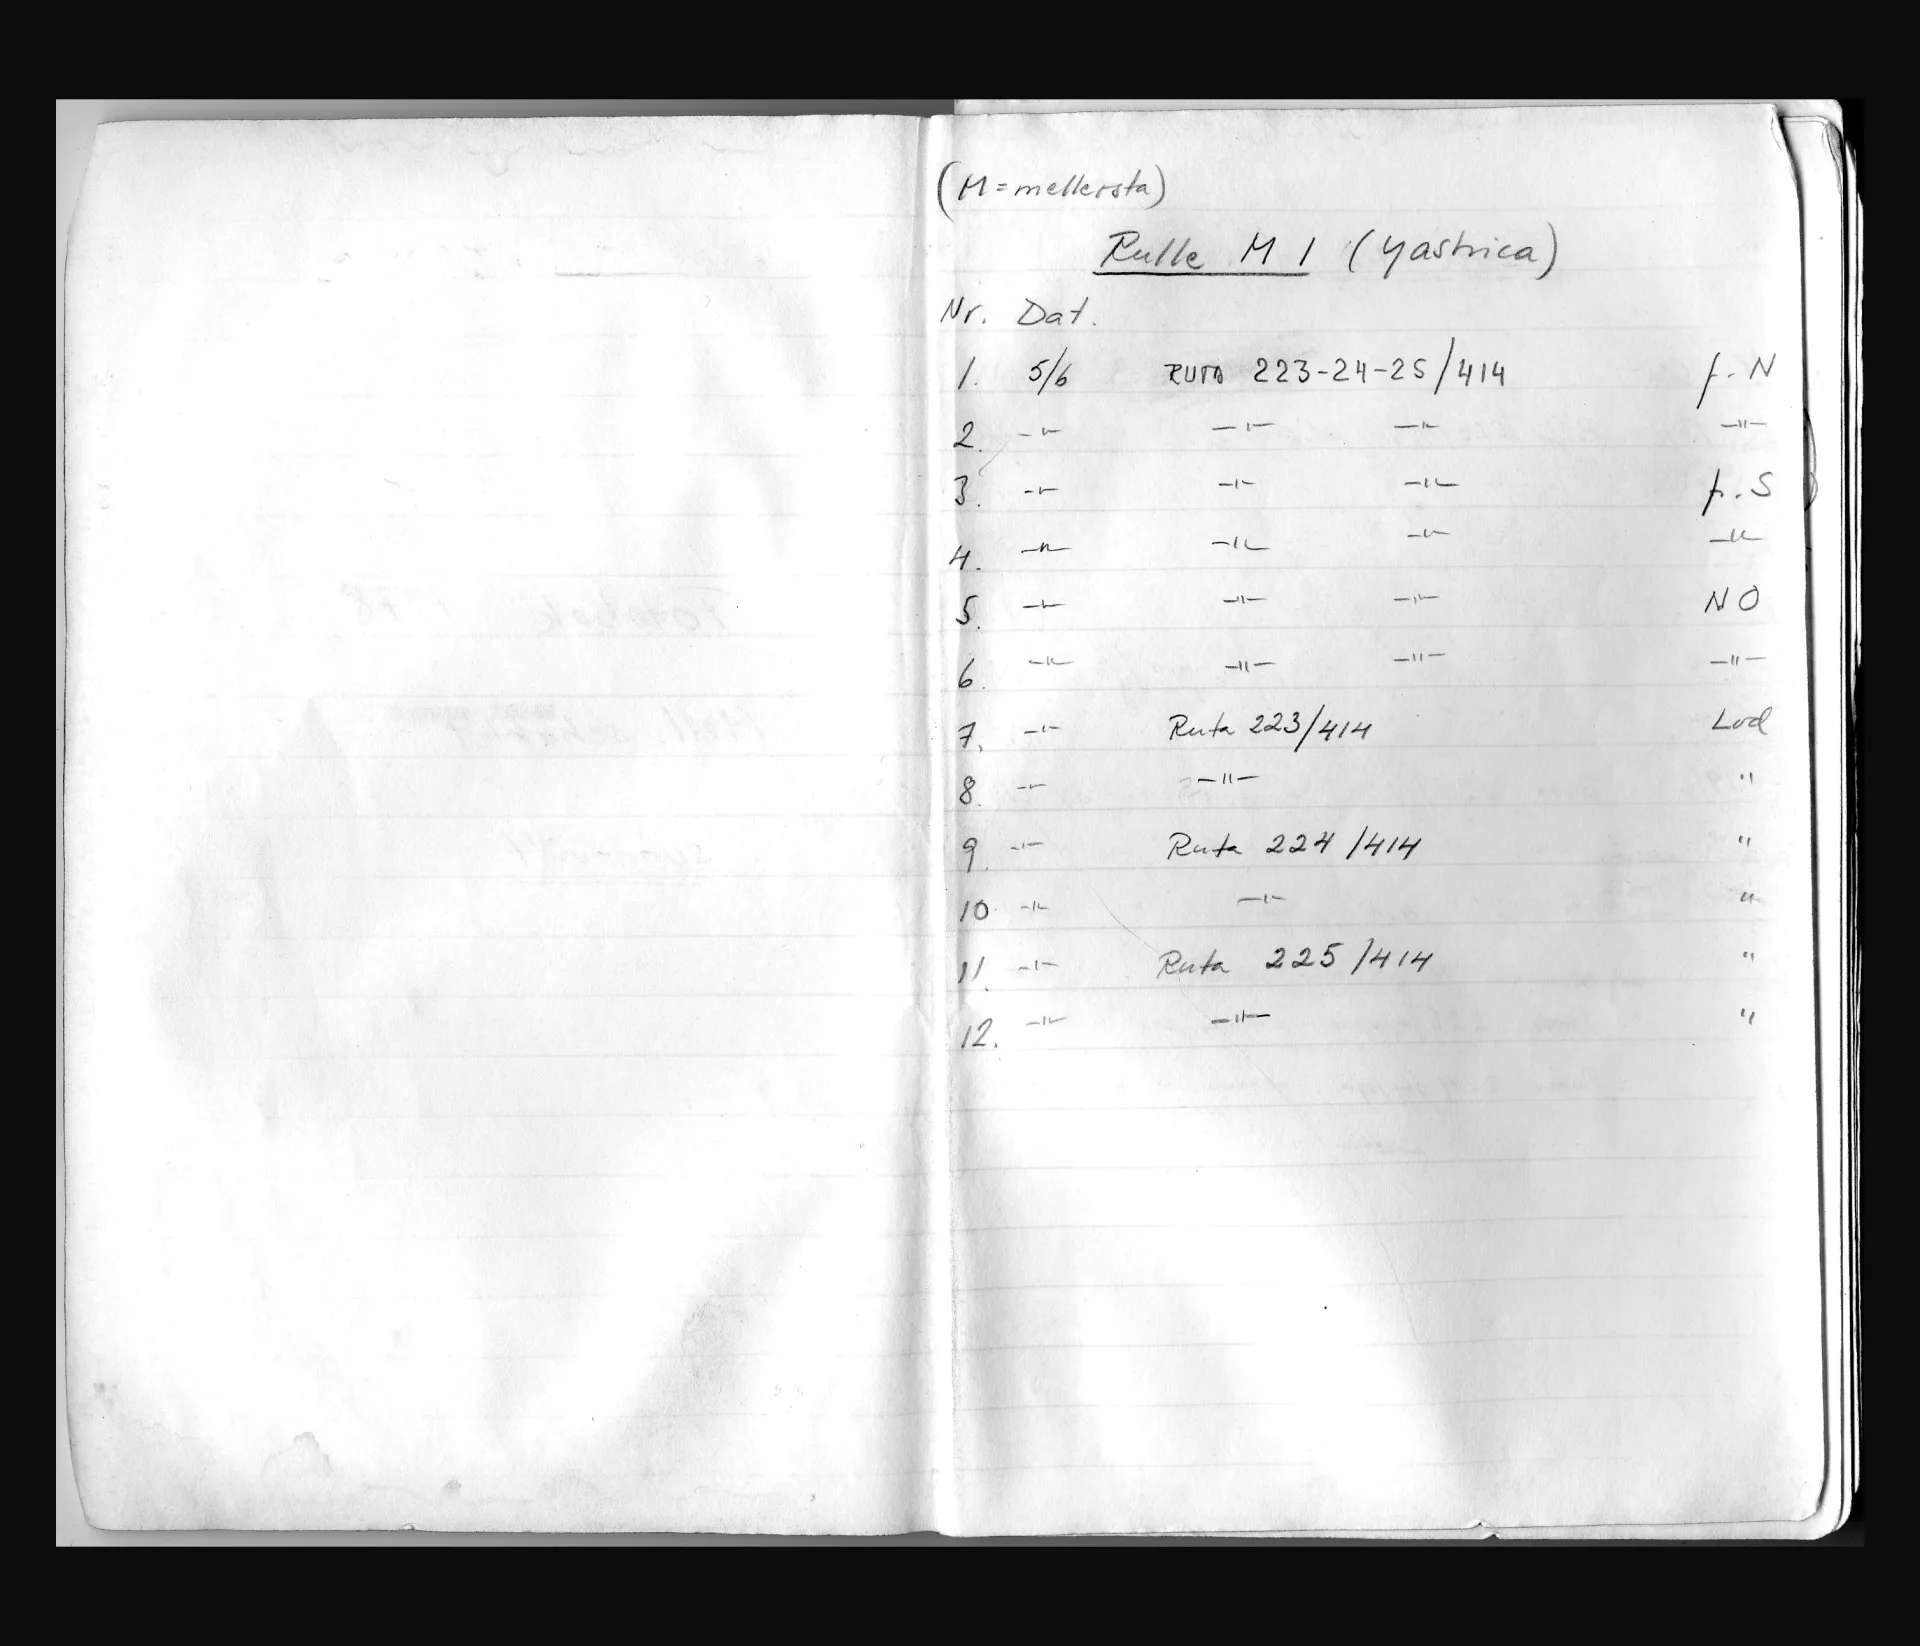 (M = mellersta)
Rulle M 1 (Yashica)
Nr. Dat.
1. 5/6 RUTA 223-24-25/414 f. N
2. -"- -"- -"- -"-
3. -"- -"- -"- f. S
4. -"- -"- -"- -"-
5. -"- -"- -"- NO
6. -"- -"- -"- -"-
7. -"- Ruta 223/414 Lod
8. -"- -"- "
9. -"- Ruta 224/414 "
10. -"- -"- "
11. -"- Ruta 225/414 "
12. -"- -"- "